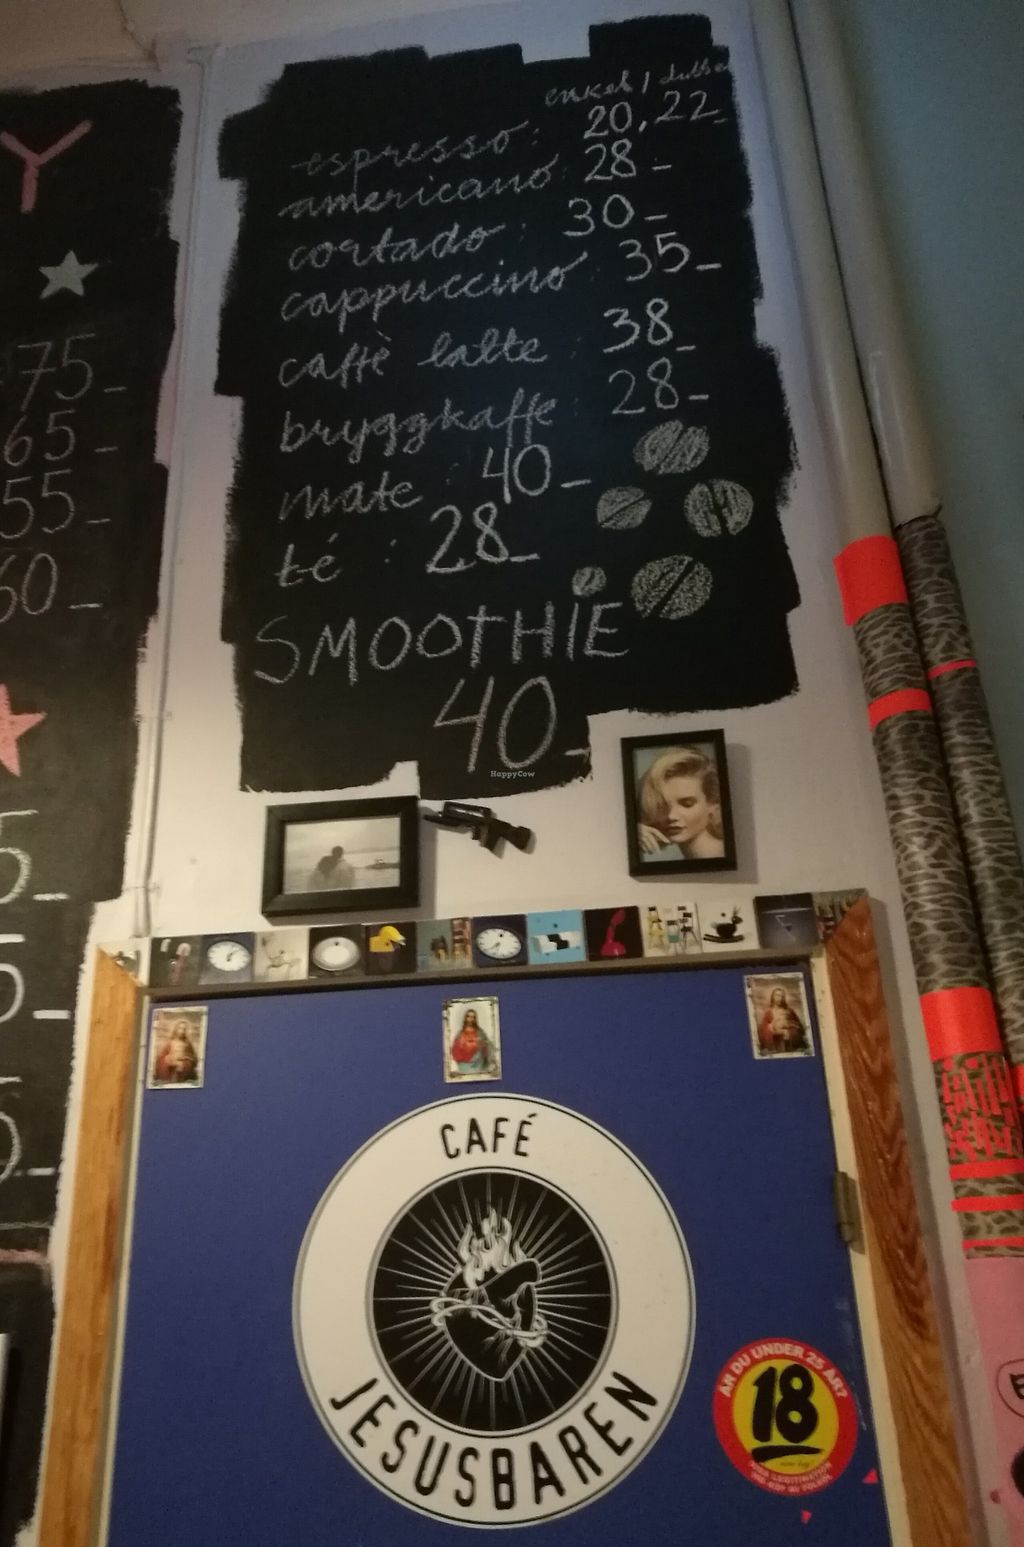 enkel / dubbel
espresso: 20, 22_
americano: 28-
cortado: 30-
cappuccino: 35_
caffè latte: 38_
bryggkaffe: 28-
mate: 40_
té: 28_
SMOOTHIE
40_
HappyCow
Y
75_
65_
55_
60_
5_
5_
CAFÉ
JESUSBAREN
ÄR DU UNDER 25 ÅR?
18